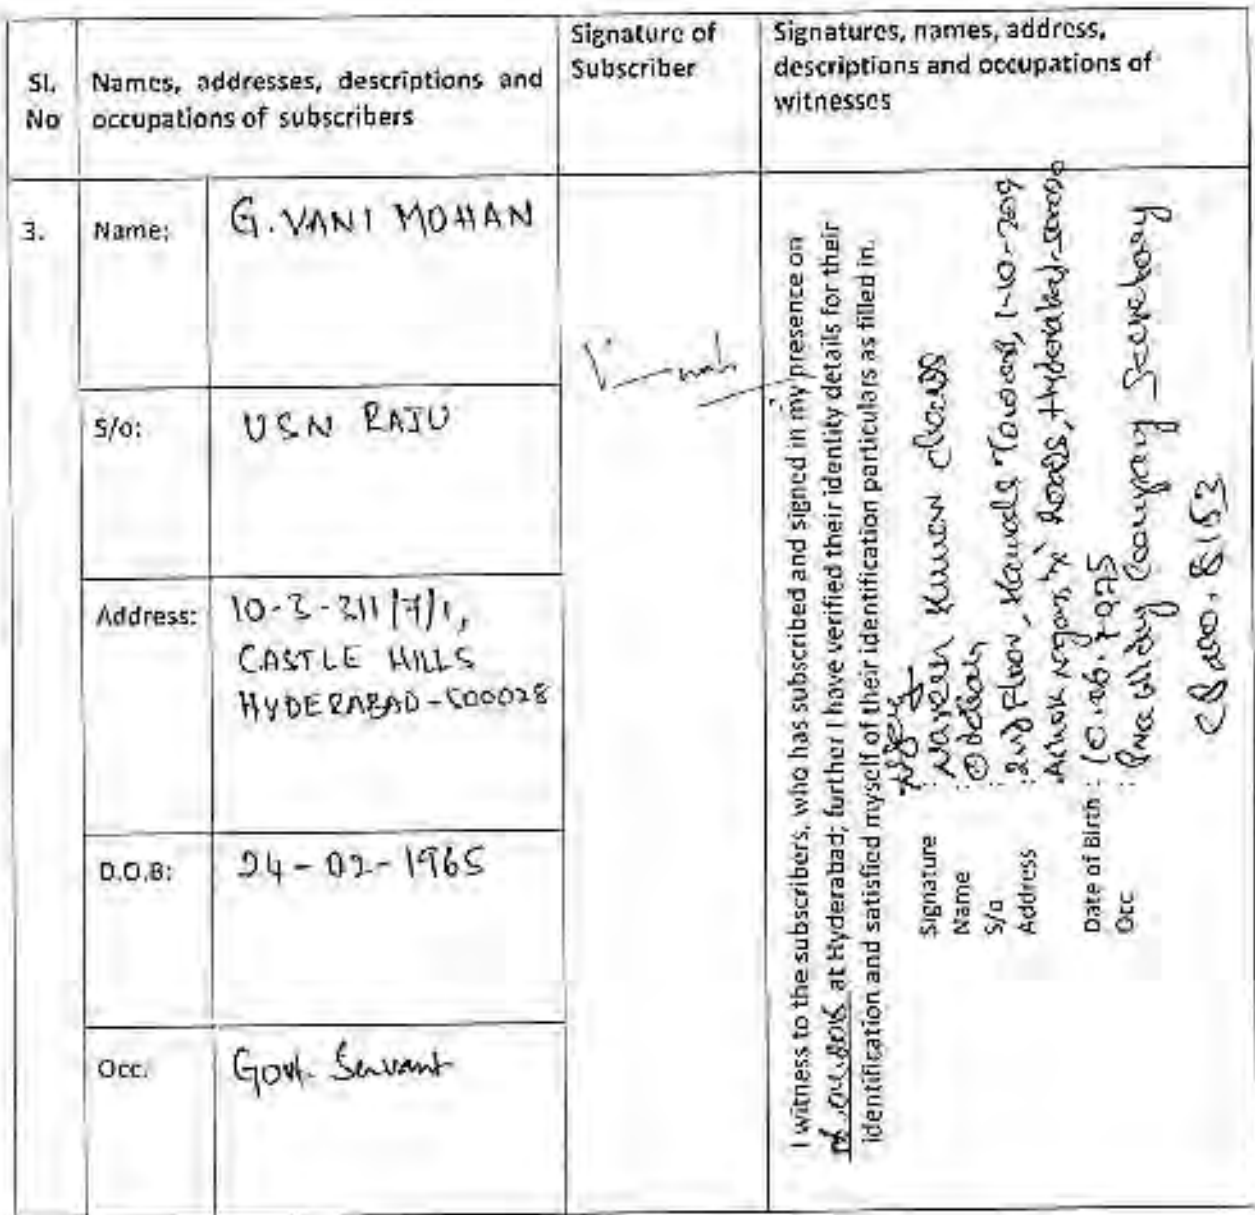 Sl. No
Names, addresses, descriptions and
occupations of subscribers
Signature of
Subscriber
Signatures, names, address,
descriptions and occupations of
witnesses
3.
Name:
G. VANI MOHAN
S/o:
USN RAJU
Address:
10-3-311/7/1,
CASTLE HILLS
HYDERABAD-500028
D.O.B:
24-02-1965
Occ.
Govt. Servant
I witness to the subscribers, who has subscribed and signed in my presence on
at Hyderabad; further I have verified their identity details for their
identification and satisfied myself of their identification particulars as filled in.
Signature :
Name : Naresh Kumar
S/o :
Address : 2nd Floor,
Ashok Nagar, Hyderabad-
Date of Birth : 10.06.1975
Occ : Company Secretary
8153